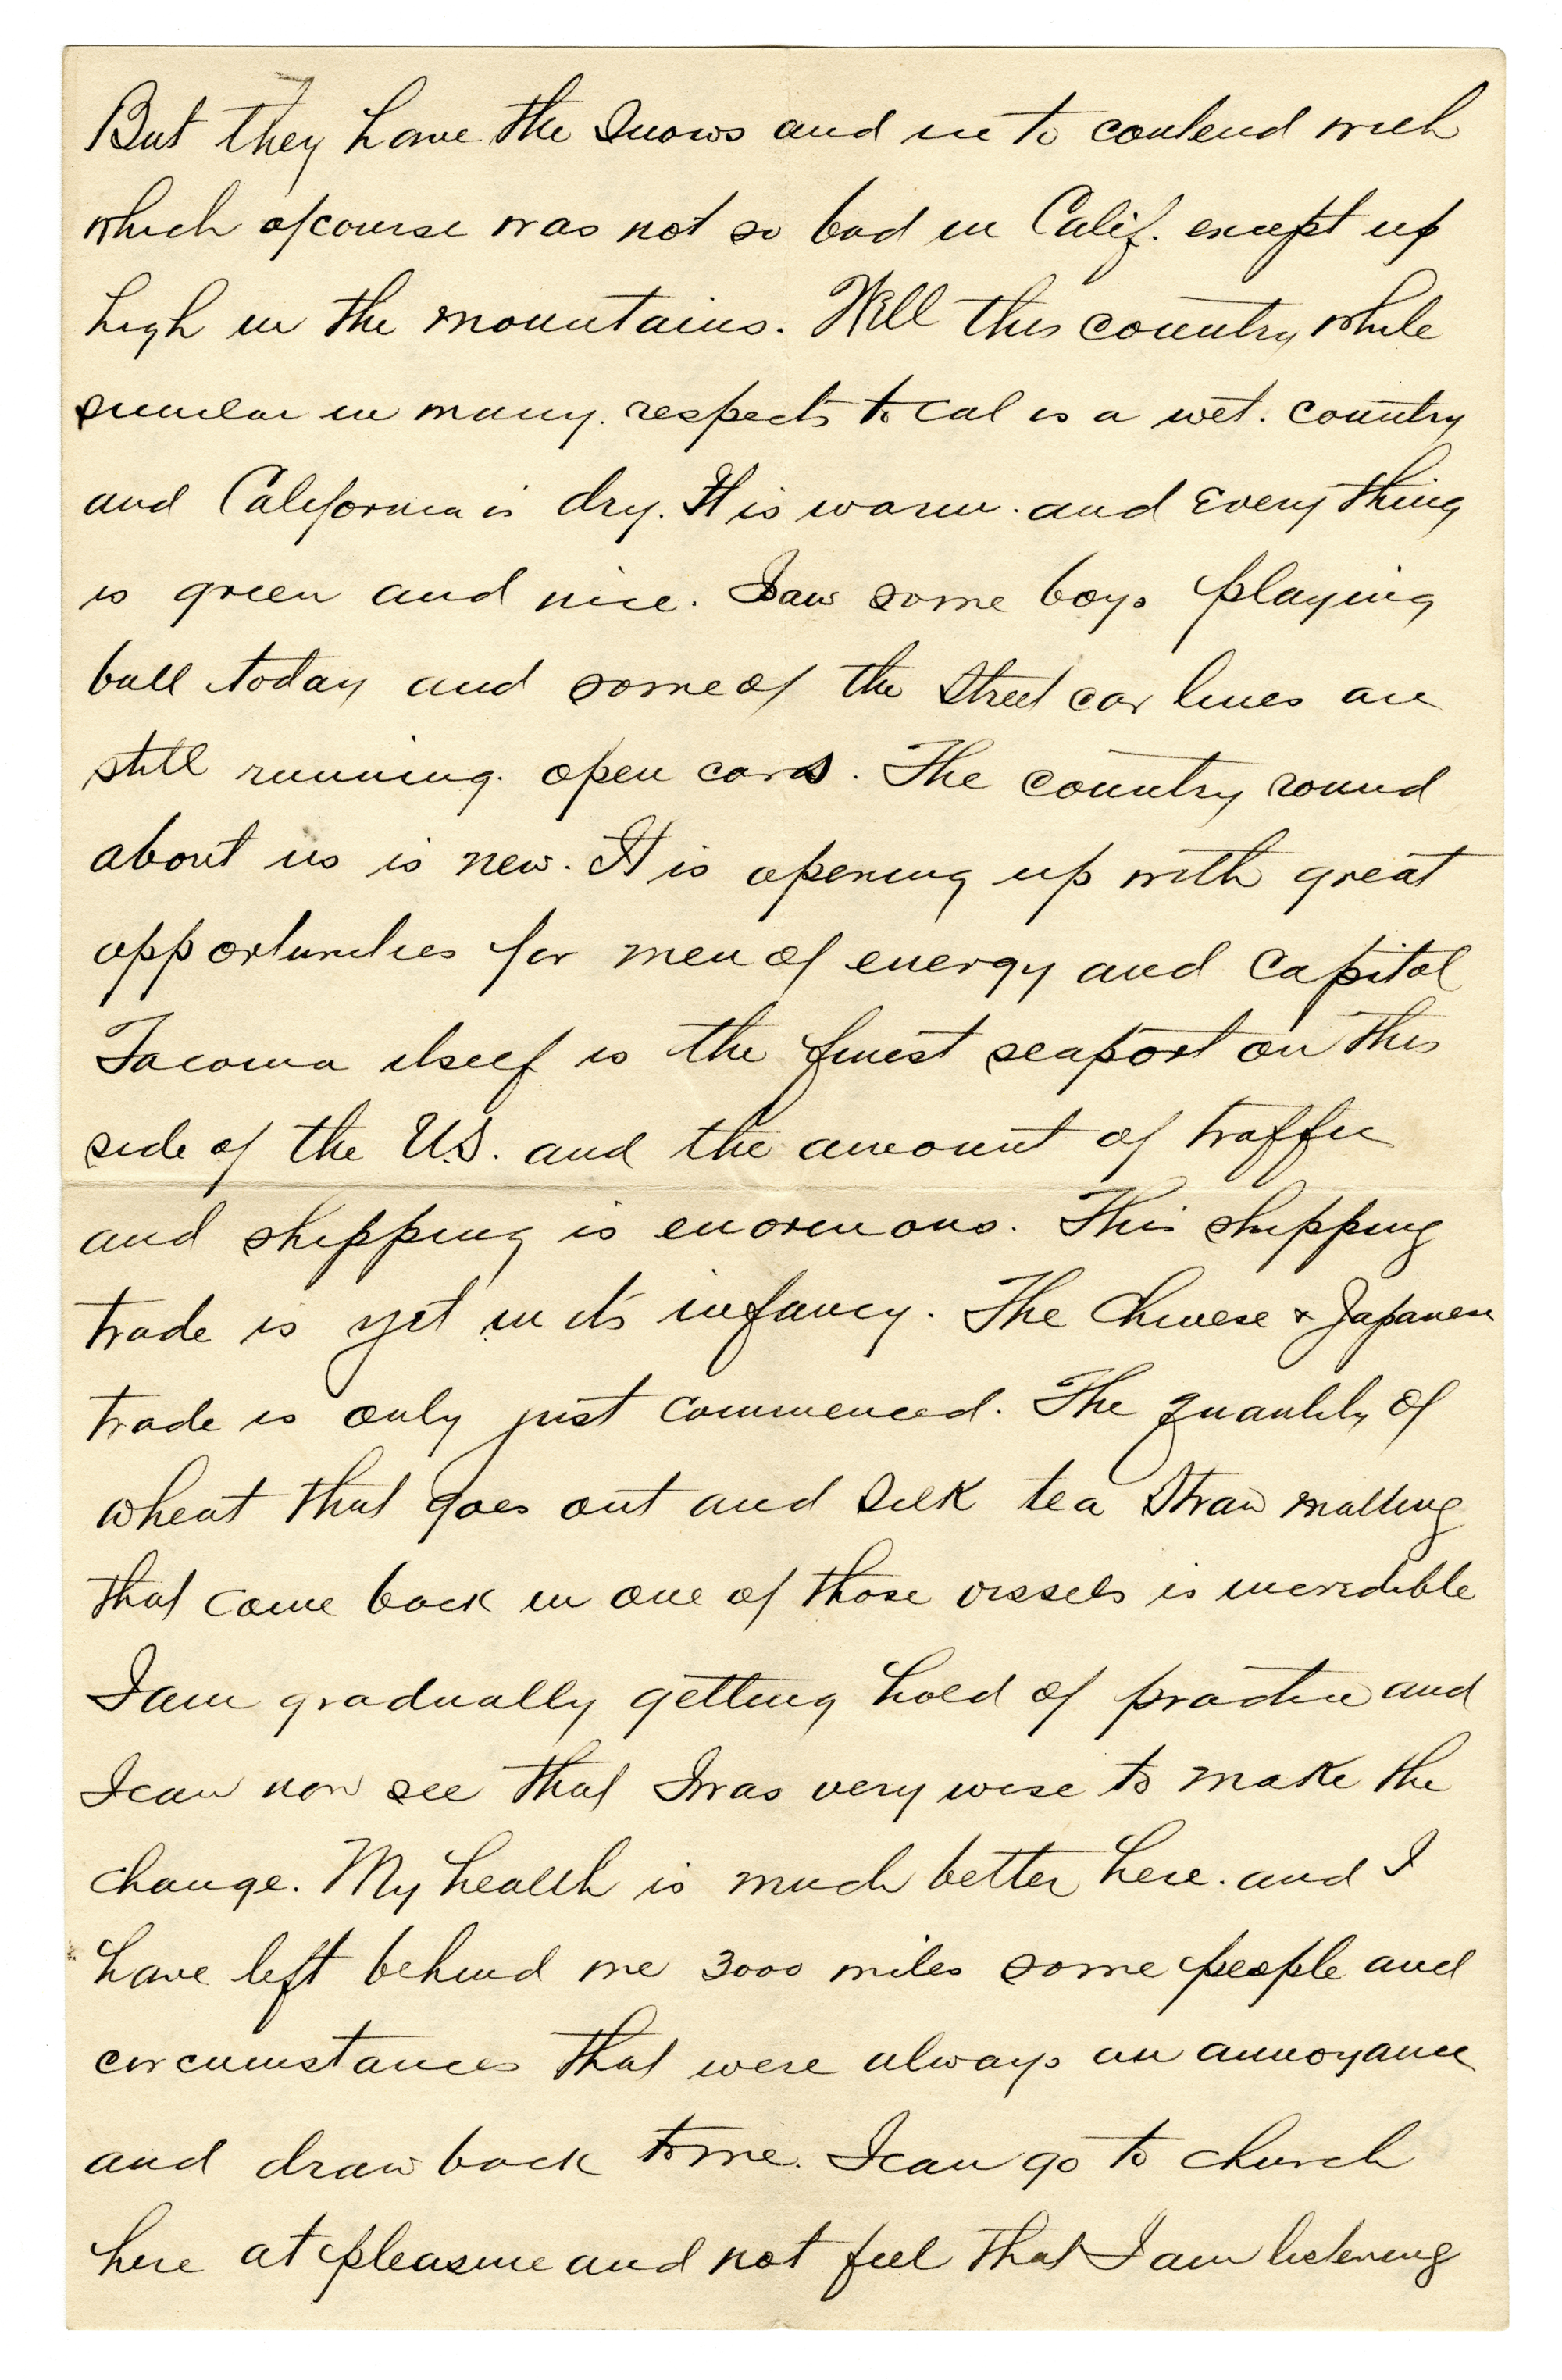 But they have the Snows and ice to contend with
which ofcourse was not so bad in Calif. except up
high in the mountains. Well this country while
similar in many respects to Cal is a wet. country
and California is dry. It is warm. and everything
is green and nice. I saw some boys playing
ball today and some of the Street car lines are
still running open cars. The country round
about us is new. It is opening up with great
opportunities for men of energy and capital
Tacoma itself is the finest seaport on this
side of the U.S. and the amount of traffic
and shipping is enormous. This shipping
trade is yet in its infancy. The Chinese & Japanese
trade is only just commenced. The quantity of
wheat that goes out and silk tea Straw matting
that come back in one of those vessels is incredible
I am gradually getting hold of practice and
I can now see that I was very wise to make the
change. My health is much better here. and I
have left behind me 3000 miles some people and
circumstances that were always an annoyance
and draw back to me. I can go to church
here at pleasure and not feel that I am listening